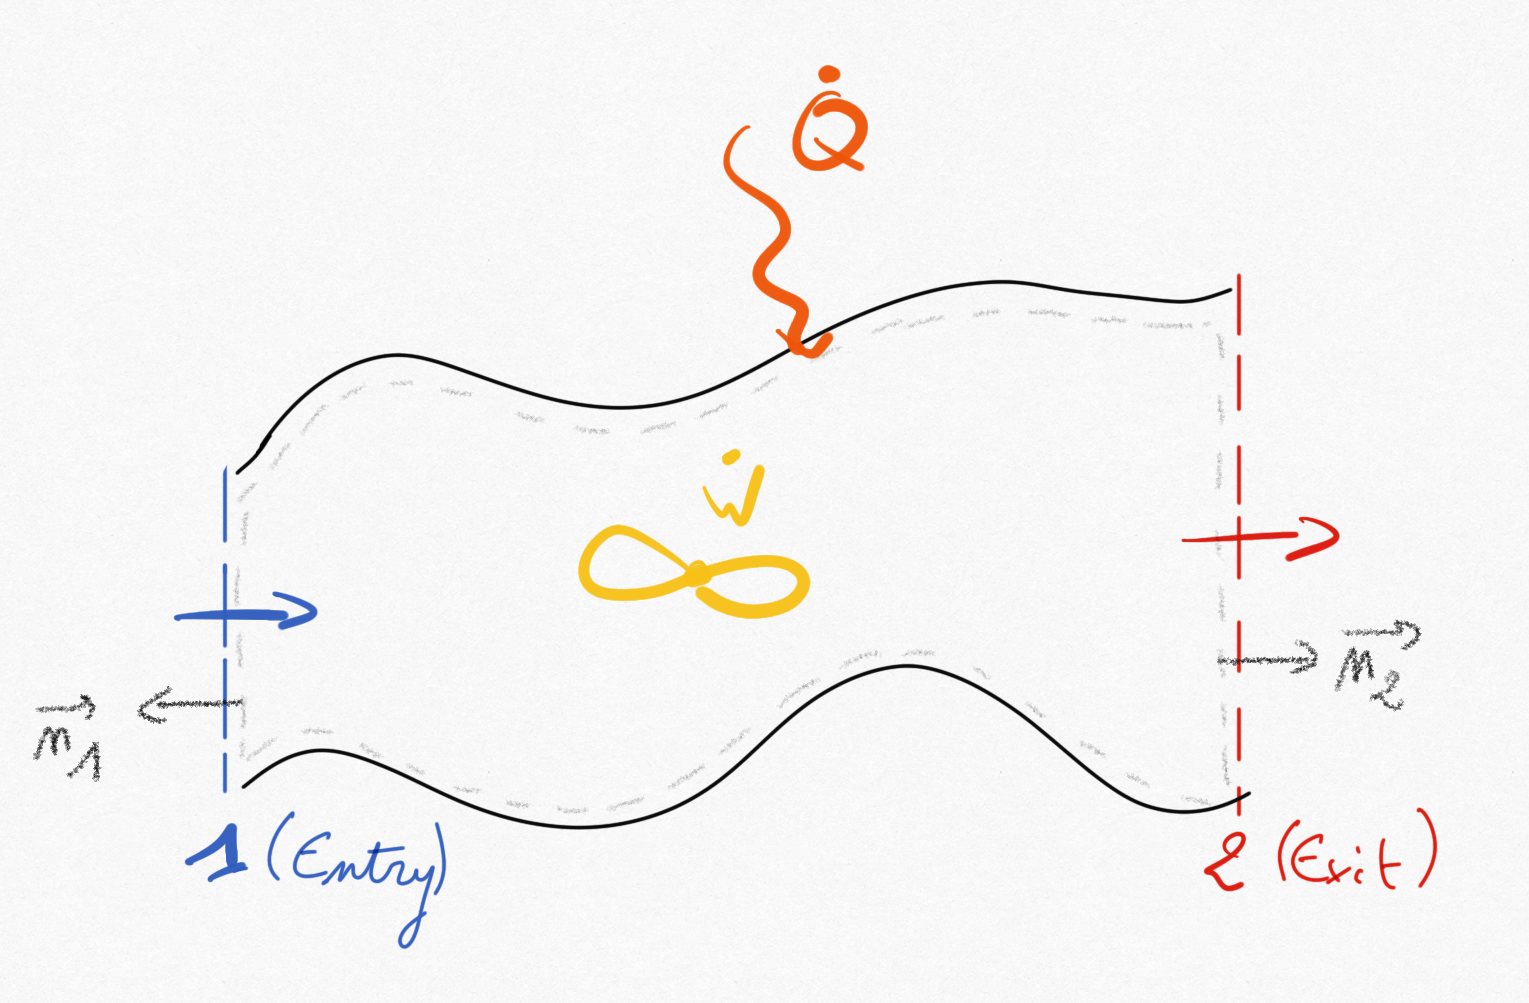 Q̇
Ẇ
n⃗₁
n⃗₂
1 (Entry)
2 (Exit)